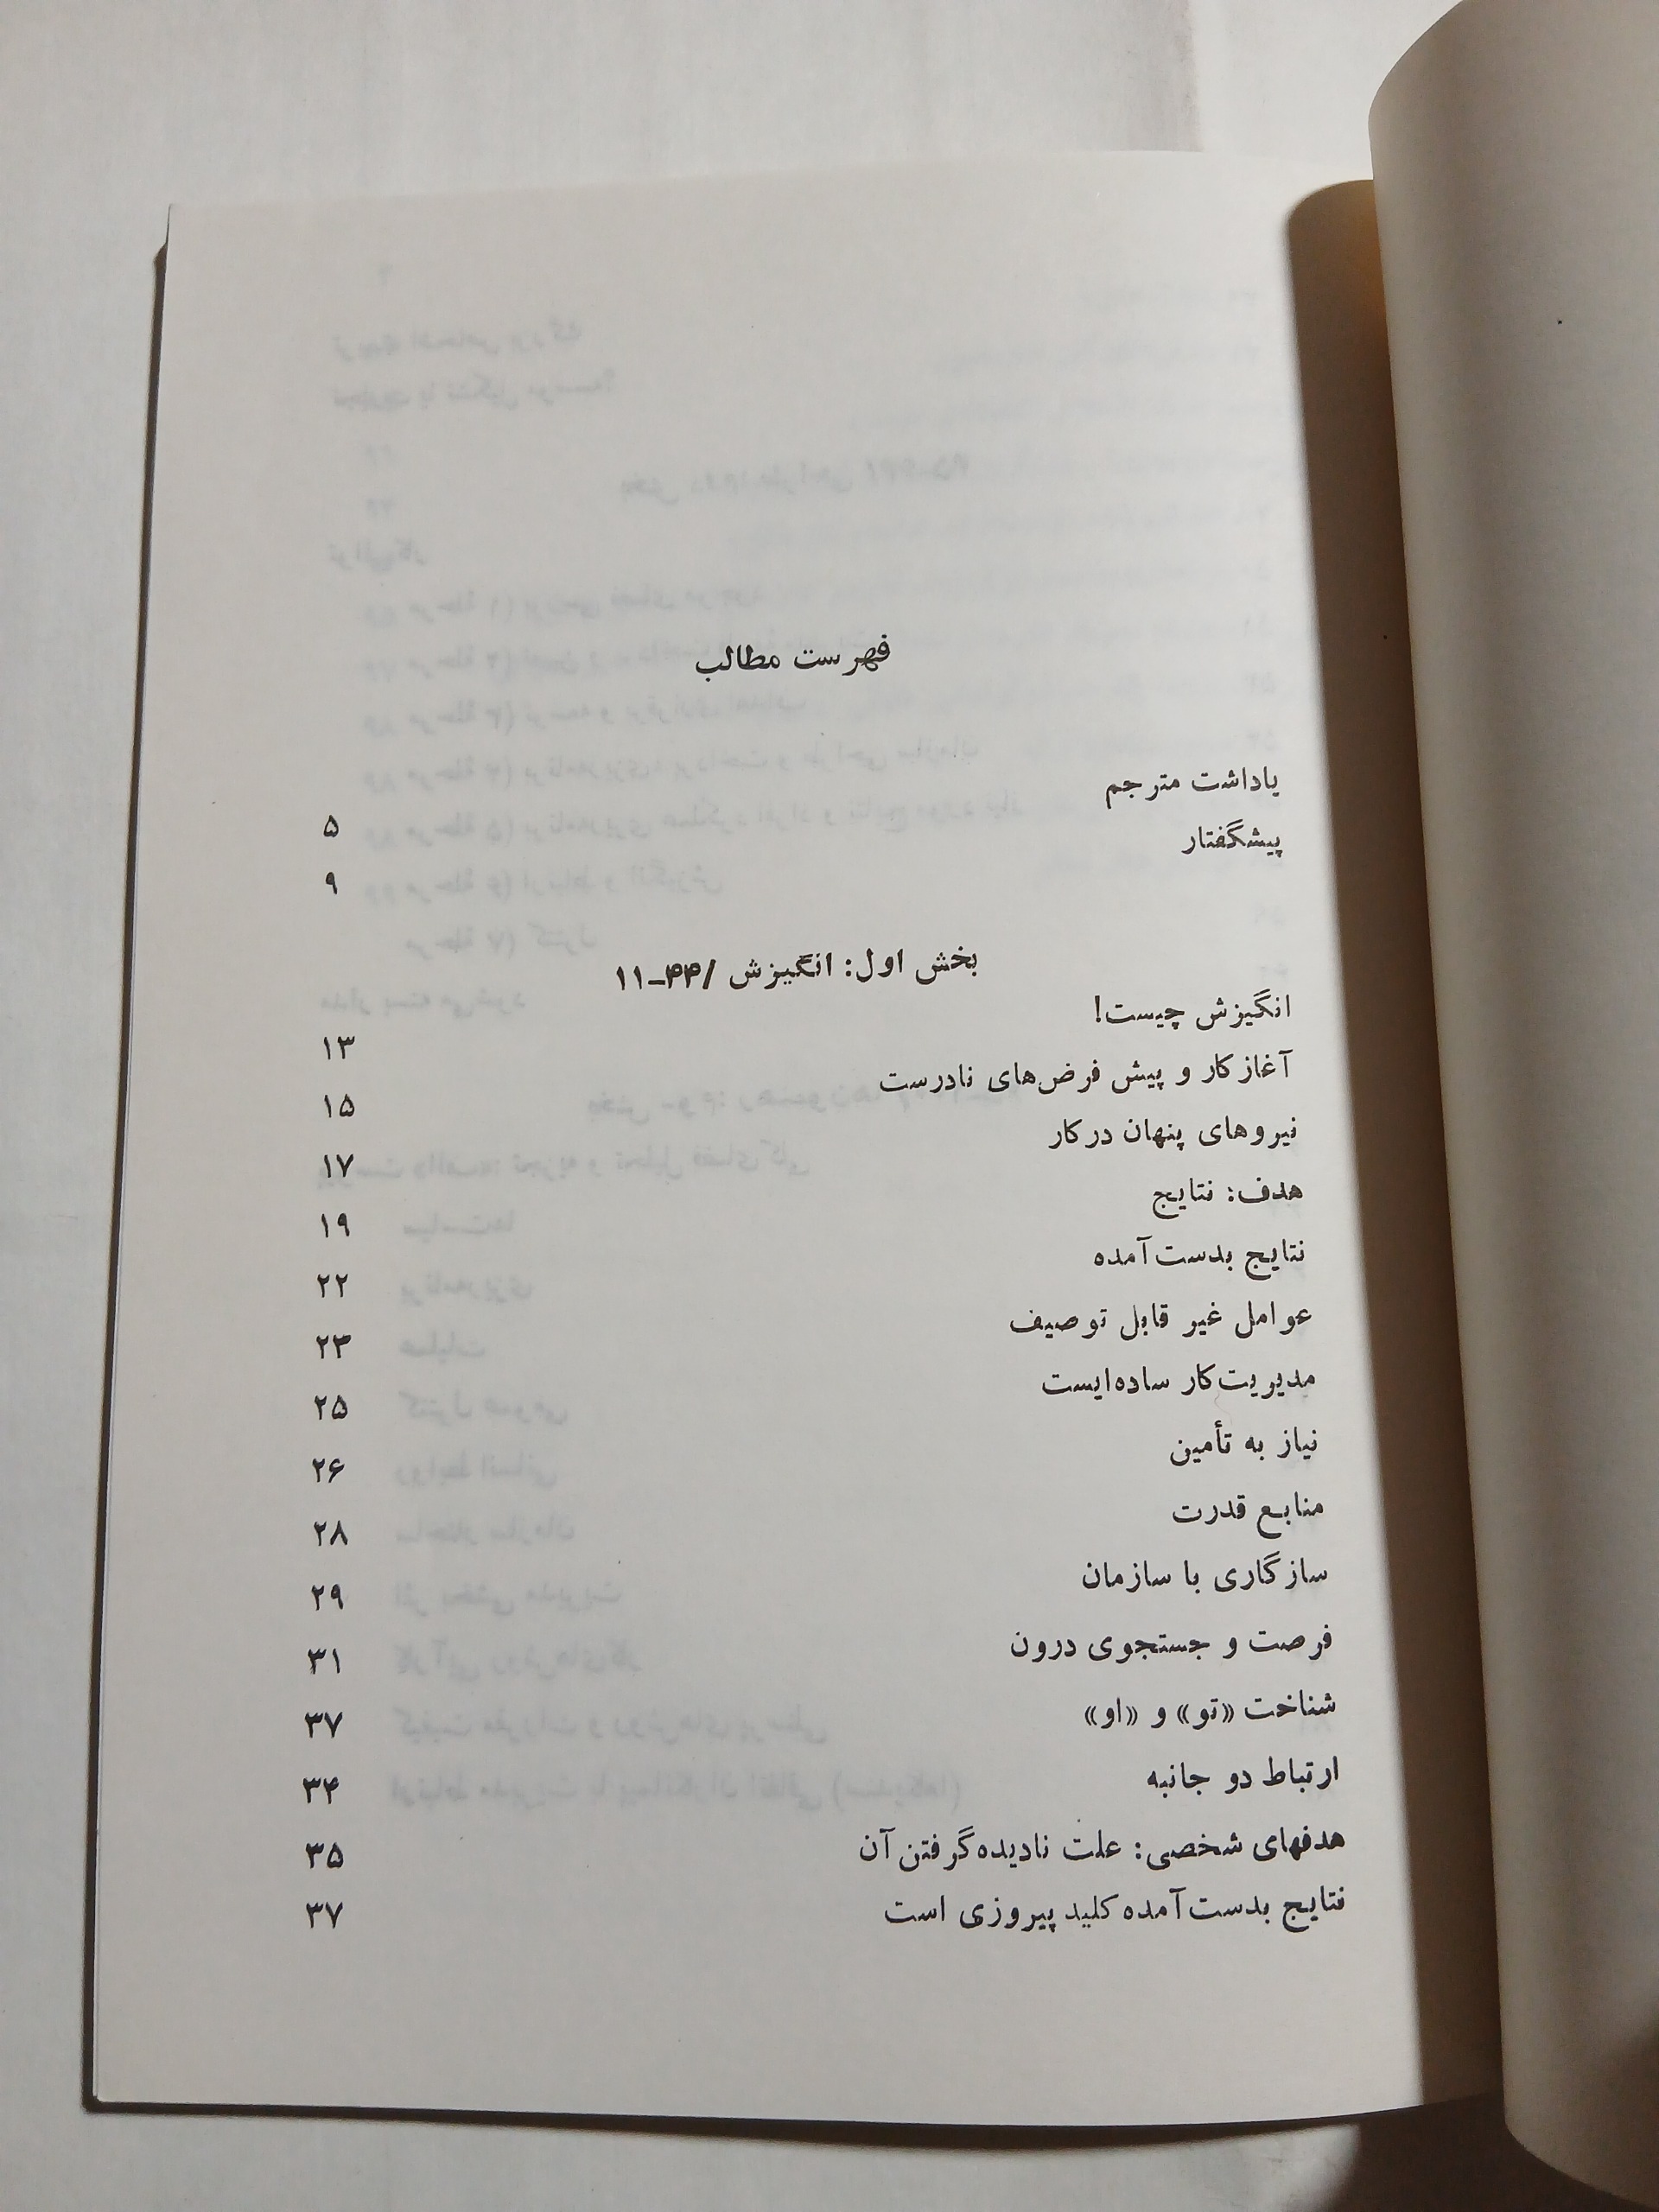 فهرست مطالب
یاداشت مترجم ۵
پیشگفتار ۹
بخش اول: انگیزش /۴۴-۱۱
انگیزش چیست! ۱۳
آغاز کار و پیش فرض‌های نادرست ۱۵
نیروهای پنهان در کار ۱۷
هدف: نتایج ۱۹
نتایج بدست آمده ۲۲
عوامل غیر قابل توصیف ۲۳
مدیریت کار ساده‌ایست ۲۵
نیاز به تأمین ۲۶
منابع قدرت ۲۸
سازگاری با سازمان ۲۹
فرصت و جستجوی درون ۳۱
شناخت «تو» و «او» ۳۷
ارتباط دو جانبه ۳۴
هدفهای شخصی: علت نادیده گرفتن آن ۳۵
نتایج بدست آمده کلید پیروزی است ۳۷